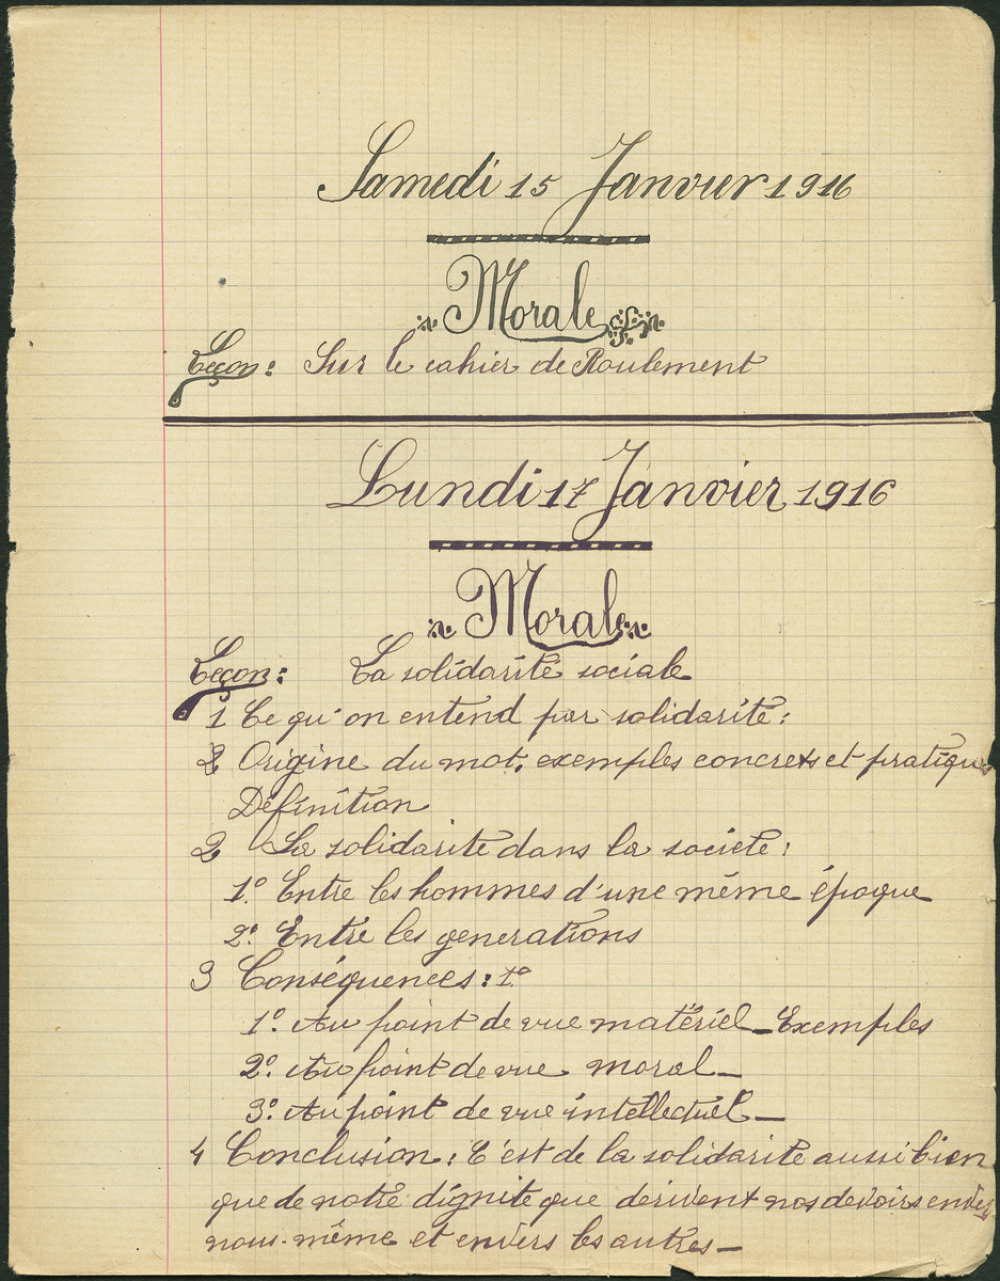 Samedi 15 Janvier 1916
Morale
Leçon : Sur le cahier de Roulement
Lundi 17 Janvier 1916
Morale
Leçon : La solidarité sociale
1 Ce qu'on entend par solidarité :
2 Origine du mot, exemples concrets et pratiques
Définition
2 La solidarité dans la société :
1° Entre les hommes d'une même époque
2° Entre les generations
3 Conséquences : 1°
1° Au point de vue matériel _ Exemples
2° Au point de vue moral _
3° Au point de vue intellectuel _
4 Conclusion : C'est de la solidarité aussi bien
que de notre dignité que dérivent nos devoirs envers
nous-même et envers les autres _